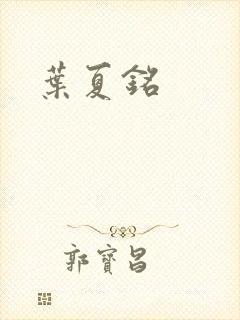 葉夏銘
郭寶昌